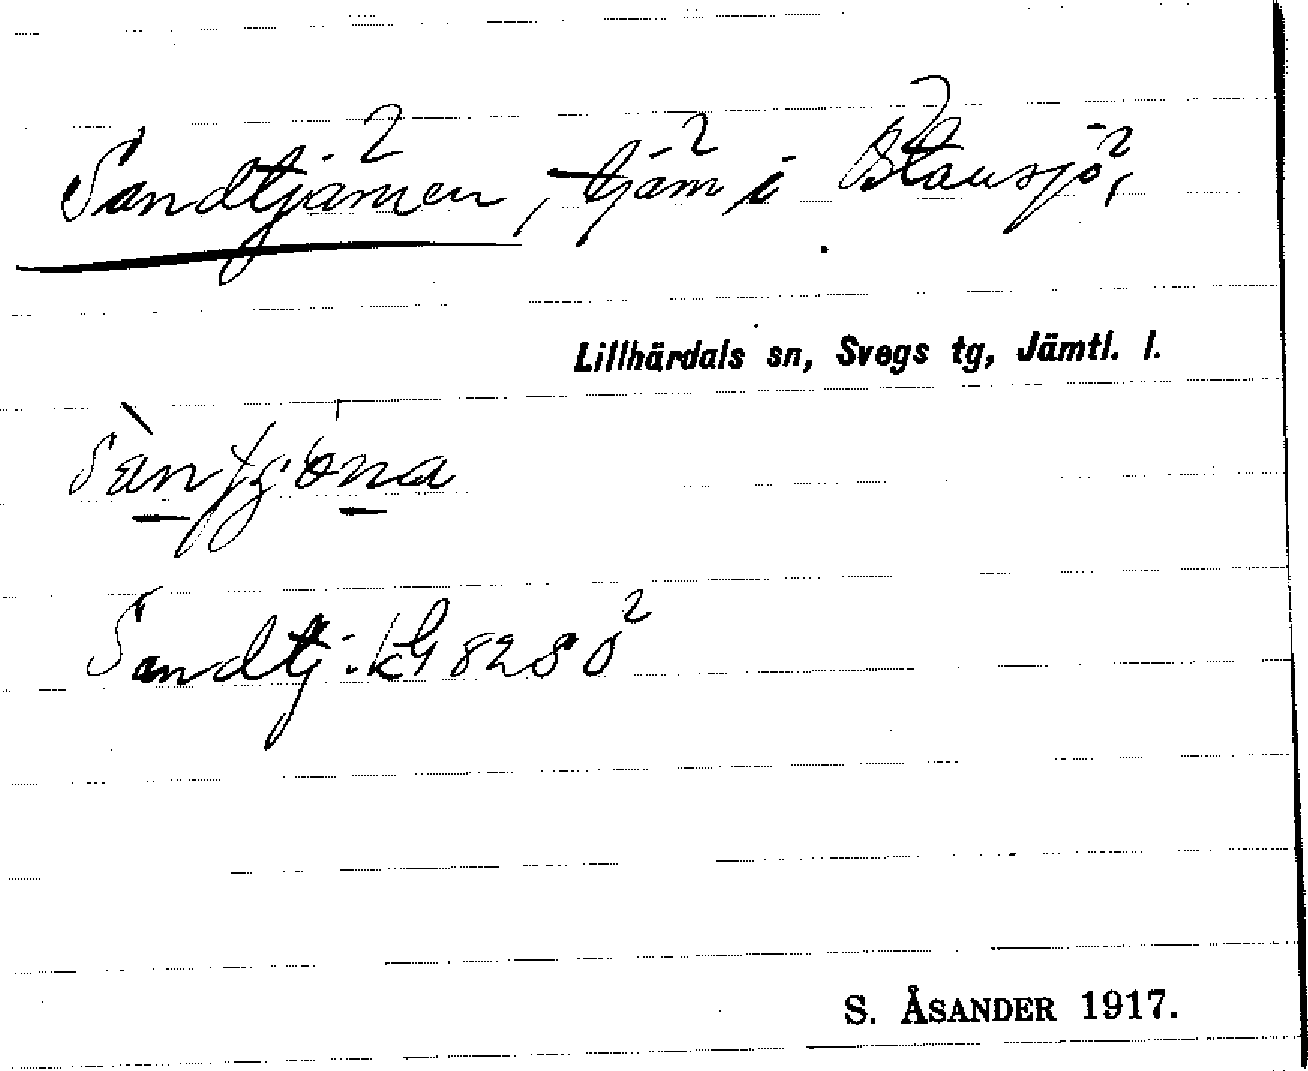 Sandtjärnen², tjärn² i Blausjö²,
Lillhärdals sn, Svegs tg, Jämtl. l.
Sandtj. kG 8280²
S. ÅSANDER 1917.